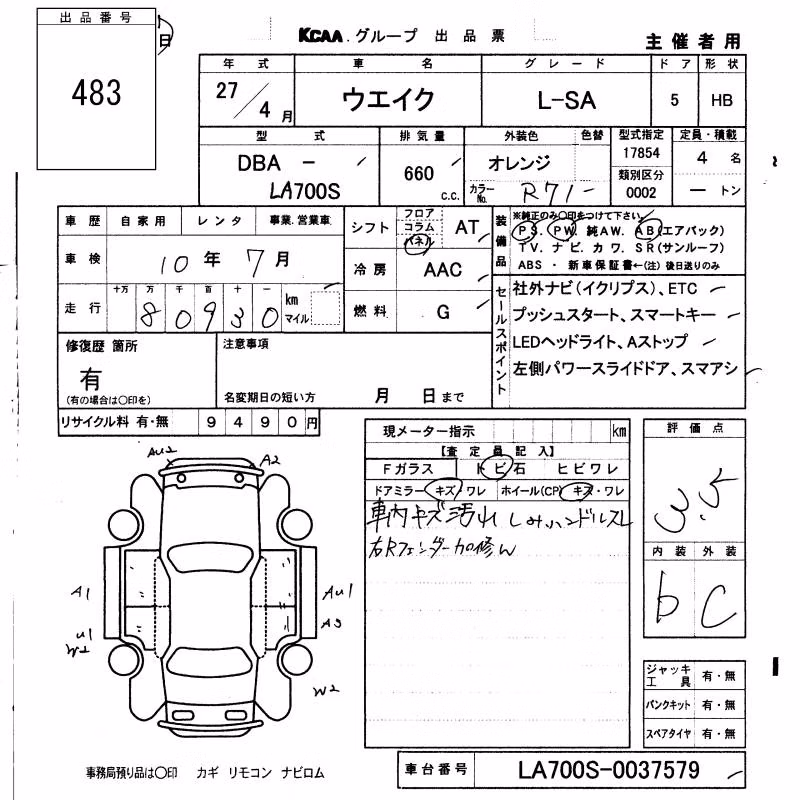 出品番号
483
日
KCAA.グループ 出品票
主催者用
年式 車名 グレード ドア 形状
27/4月 ウエイク L-SA 5 HB
型式 排気量 外装色 色替 型式指定 定員・積載
DBA - 660 オレンジ 17854 4名
類別区分
LA700S C.C. カラーNo. R71 0002 ートン
車歴 自家用 レンタ 事業.営業車
シフト フロア コラム パネル AT
装備品
※純正のみ〇印をつけて下さい
PS. PW. 純AW. AB(エアバック)
TV. ナビ. カワ. SR(サンルーフ)
ABS・新車保証書←(注)後日送りのみ
車検 10年7月
冷房 AAC
走行 十万 万 千 百 十 一
80930 km マイル
燃料 G
セールスポイント
社外ナビ(イクリプス)、ETC
プッシュスタート、スマートキー
LEDヘッドライト、Aストップ
左側パワースライドドア、スマアシ
修復歴 箇所
有
(有の場合は〇印を)
注意事項
名変期日の短い方 月 日まで
リサイクル料 有・無 9490円
現メーター指示 km
【査定員記入】
Fガラス トビ石 ヒビワレ
ドアミラー キズ・ワレ ホイール(CP) キズ・ワレ
車内キズ汚れ しみハンドルスレ
右Rフェンダー加修ん
評価点
3.5
内装 外装
b C
Au2 A2
A1 Au1
A3
U1
W2
W2
ジャッキ工具 有・無
パンクキット 有・無
スペアタイヤ 有・無
事務局預り品は〇印 カギ リモコン ナビロム
車台番号 LA700S-0037579